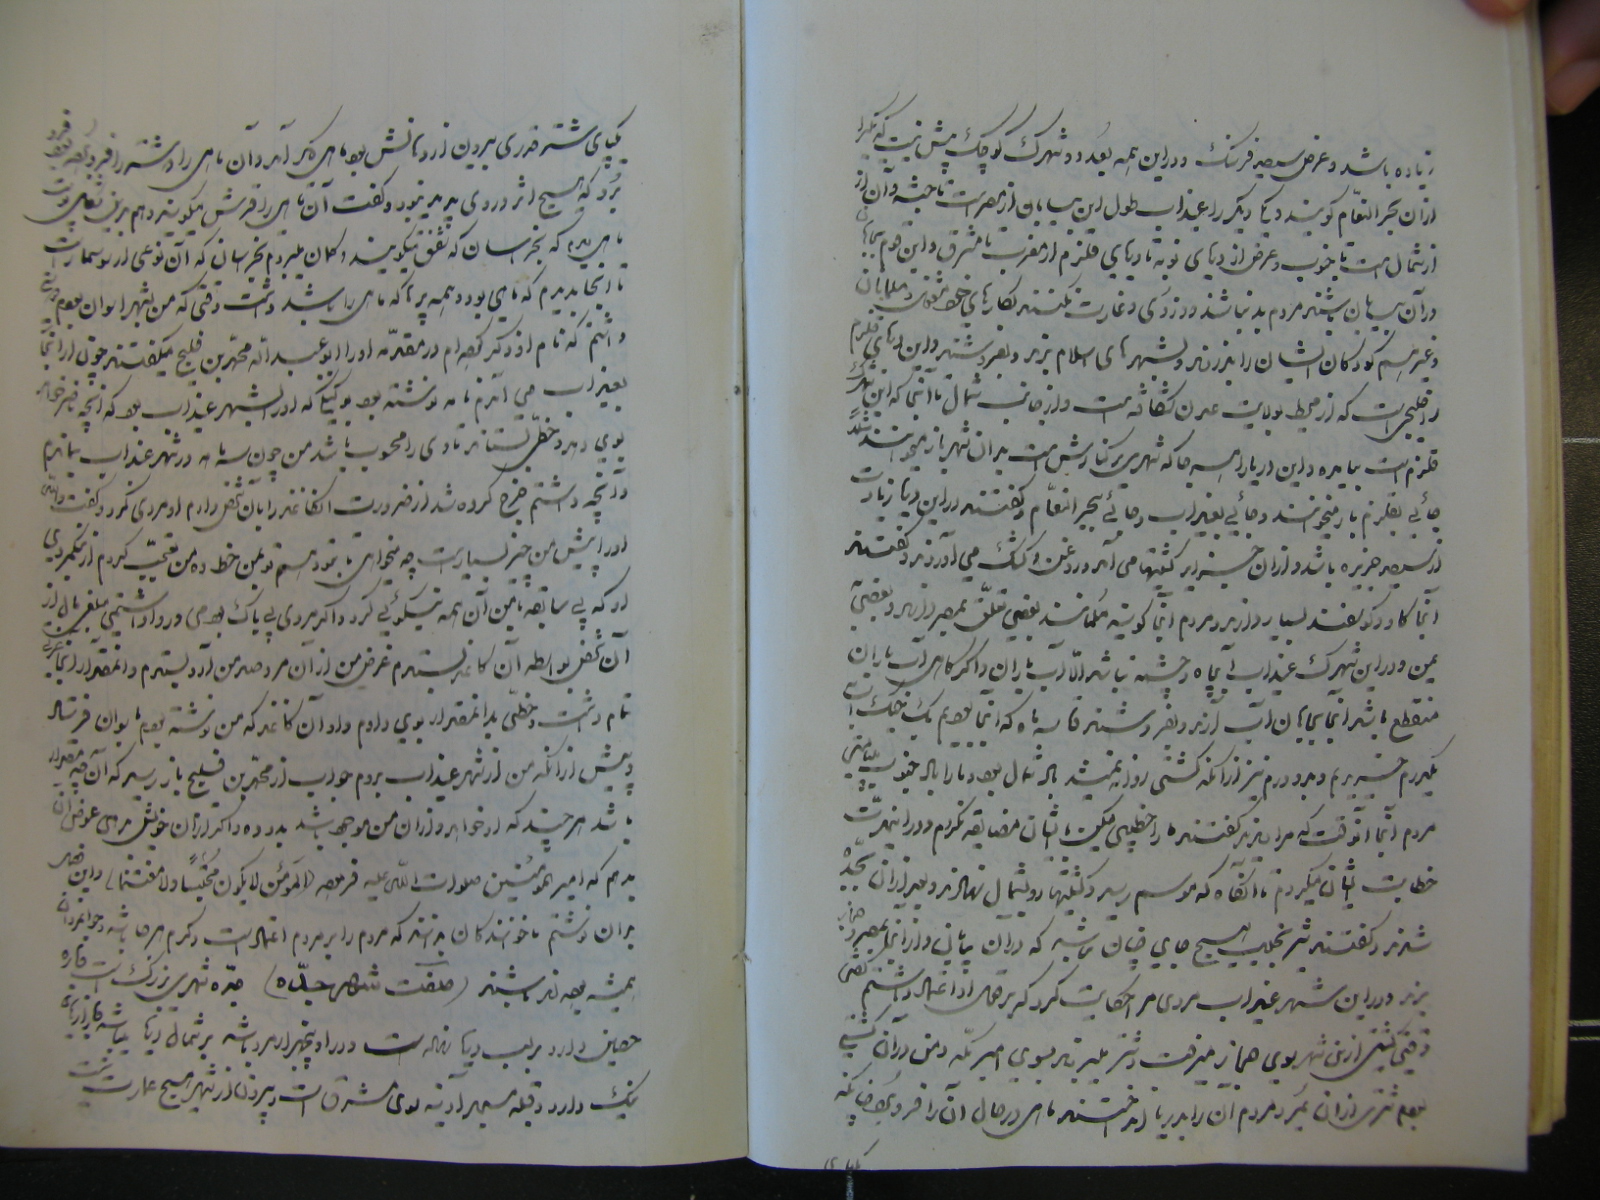 زیاده باشد و عرض سیصد فرسنگ و در این همه بعد دو شهرک کوچک بیش نیست که یکی را
ازان بحر النعام گویند و یکی دیگر را عیذاب طول این بیابان از مصر است تا حبشه و آن از
از شمال است تا جنوب و عرض از دریای نوبه تا دریای قلزم از مغرب تا مشرق و این قوم بجاهان
در آن بیابان باشند مردم بد نباشند و دزدی و غارت نکنند بکارهای خود مشغول و مسلمانان
و غیرهم کودکان ایشان را بدزدند و بشهرهای اسلام برند و بفروشند و این دریای قلزم
را خلیجی است که از محیط بولایت عدن شکافته است و از جانب شمال تا آنجا که این شهرک
قلزم است بیامده و این دریا را هر جا که شهری بر کنارش است بدان شهر باز میخوانند مثلاً
جائی بقلزم باز میخوانند و جائی بعیذاب و جائی ببحر النعام و گفتند در این دریا زیادت
از سیصد جزیره باشد و ازان جزایر کشتیها می آید و روغن و کشک می آورند و گفتند
آنجا گاو و گوسفند بسیار دارند و مردم آنجا گویند مسلمانند بعضی تعلق بمصر دارند و بعضی به
یمن و در این شهرک عیذاب آب چاه و چشمه نباشد الا آب باران و اگر گاهی آب باران
منقطع باشد آنجا بجاهان آب آرند و بفروشند و تا سه ماه که آنجا بودیم یک خیک آب
بیکدرم خریدیم و بدو درم نیز از آنکه کشتی روانه نمیشد باد شمال بود و ما را باد جنوب میبایست
مردم آنجا آنوقت که مرا دیدند گفتند ما را خطیبی میکن با ایشان مضایقه نکردم و در آن مدت
خطابت ایشان میکردم تا آنگاه که موسم رسید و کشتیها روی بشمال نهادند و بعد ازان بجده
شدم و گفتند شتر نجیب هیچ جای چنان نباشد که در آن بیابان و از آنجا بمصر و حجاز
برند و در این شهر عیذاب مردی مرا حکایت کرد که بر قول او اعتماد داشتم گفت
وقتی کشتی ازین شهر بسوی حجاز میرفت و شتر میبردند بسوی امیر مکه و من در آن کشتی
بودم شتری ازان بمرد مردم آن را بدریا انداختند ماهی در حال آن را فرو برد چنانکه
یکپای
یکپای شتر قدری بیرون از دهانش بود ماهی دیگر آمد و آن ماهی را و شتر را فرو برد
برد که هیچ اثر درو پدید نبود و گفت آن ماهی را قرش میگویند و هم بدین شهر پوست
ماهی دیدم که بخراسان که شفق میگویند و گمان میبردم بخراسان که آن نوعی از سوسمار است
تا آنجا بدیدم که ماهی بود و همه پرها که ماهی را باشد داشت وقتی که من بشهر اسوان بودم دوستی
داشتم که نام او ذکر کرده ام در مقدمه او را ابو عبد الله محمد بن فلیج میگفتند چون از آنجا
بعیذاب می آمدم نامه نوشته بود بوکیلی که او را بشهر عیذاب بود که آنچه ناصر خواهد
بوی دهد و خطی بستاند تا وی را محسوب باشد من چون سه ماه در شهر عیذاب بماندم
و آنچه داشتم خرج کرده شد از ضرورت آن کاغذ را بآن شخص دادم او مردمی کرد و گفت والله
او را پیش من چیز بسیار است چه میخواهی تا بتو دهم تو بمن خط ده من تعجب کردم از نیکمردی
او که بی سابقه با من آن همه نیکوئی کرد و اگر مردی بی باک بودمی و روا داشتمی مبلغی مال از
آن شخص بواسطه آن کاغذ بستدم غرض من از آن مرد صد من آرد بستدم و آنمقدار را آنجا عزتی
تمام داشت و خطی بدانمقدار بوی دادم و او آن کاغذ که من نوشته بودم باسوان فرستاد
و پیش از آنکه من از شهر عیذاب بروم جواب از محمد بن فلیج باز رسید که آن چه مقدار
باشد هر چند که او خواهد و از آن من موجود باشد بدو ده و اگر از آن خویش بدهی عوض آن
بدهم که امیر المؤمنین صلوات الله علیه فرموده (المؤمن لا یکون محتشماً ولا مغتنماً) و این فصل
بدان نوشتم تا خوانندگان بدانند که مردم را بر مردم اعتماد است و کرم هر جا باشد و جوانمردان
همیشه بوده اند و باشند (صفت شهر جدّه) جده شهری بزرگ است و باره
حصین دارد بر لب دریا نهاده است و در او پنجهزار مرد باشد بر شمال دریا نهاده است و بازارهای
نیک دارد و قبله مسجد آدینه سوی مشرق است و بیرون از شهر هیچ عمارت نیست